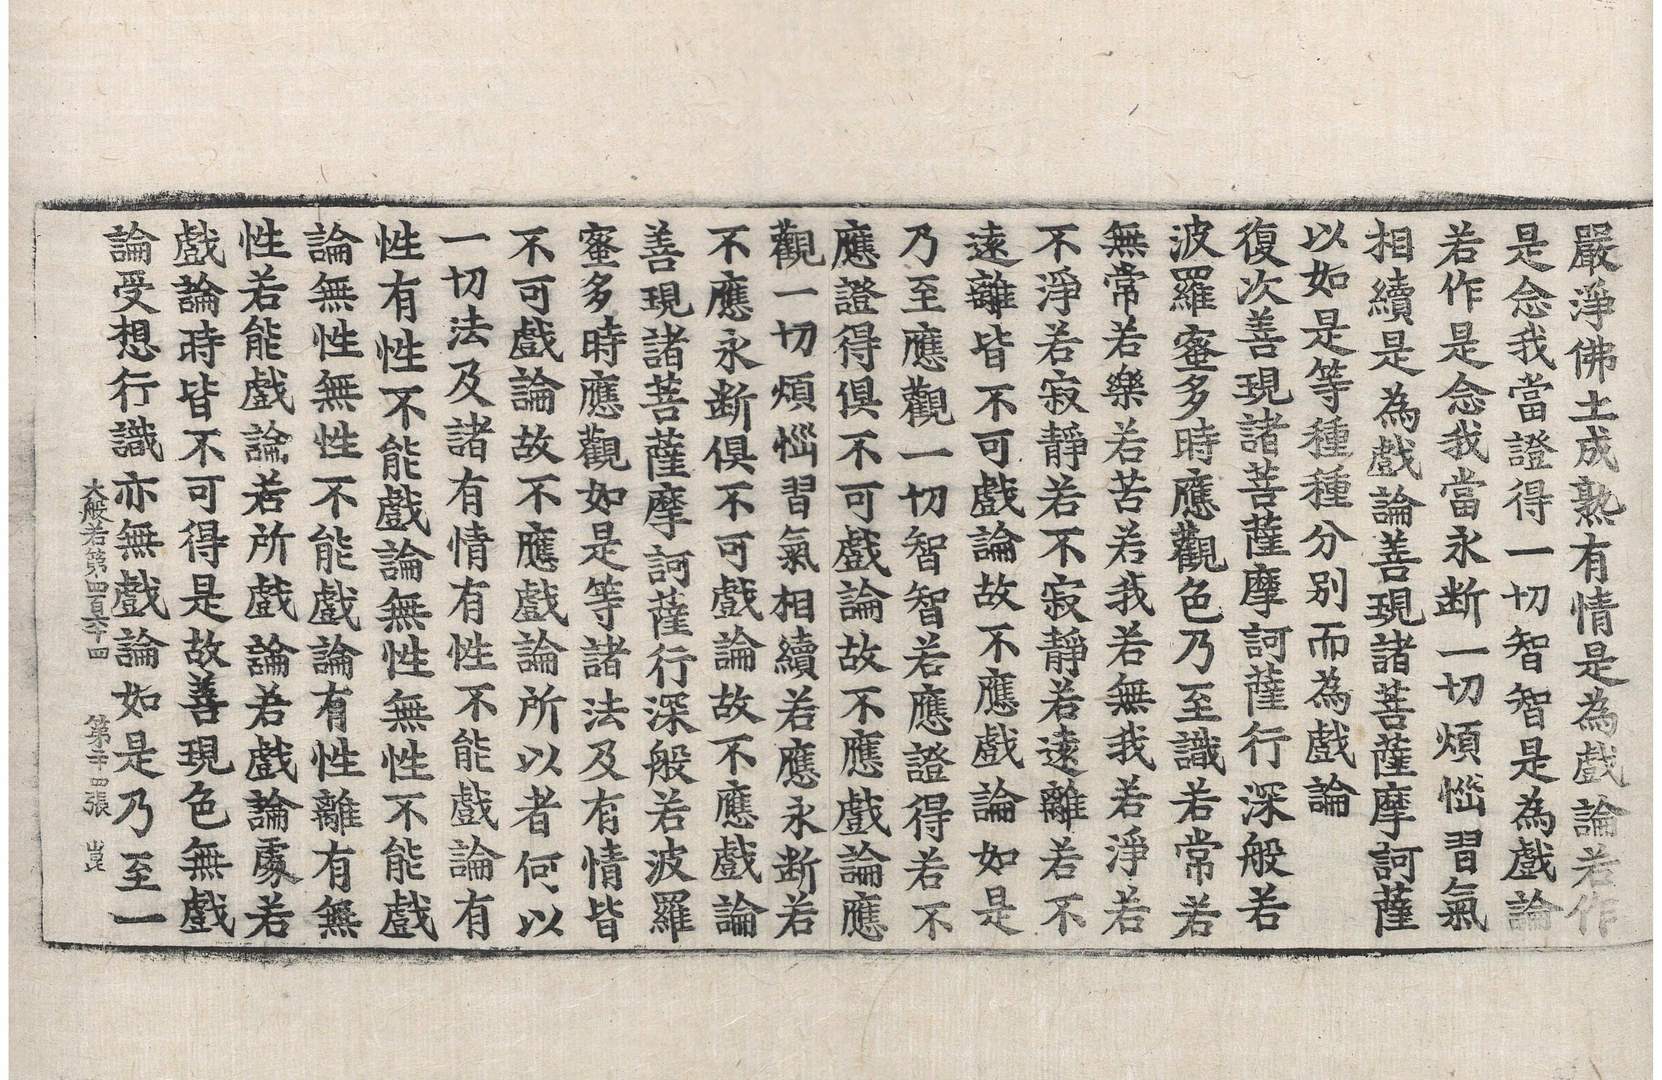 嚴淨佛土成熟有情是為戲論若作
是念我當證得一切智智是為戲論
若作是念我當永断一切煩惱習氣
相續是為戲論善現諸菩薩摩訶薩
以如是等種種分別而為戲論
復次善現諸菩薩摩訶薩行深般若
波羅蜜多時應觀色乃至識若常若
無常若樂若苦若我若無我若淨若
不淨若寂靜若不寂靜若遠離若不
遠離皆不可戲論故不應戲論如是
乃至應觀一切智智若應證得若不
應證得俱不可戲論故不應戲論應
觀一切煩惱習氣相續若應永断若
不應永断俱不可戲論故不應戲論
善現諸菩薩摩訶薩行深般若波羅
蜜多時應觀如是等諸法及有情皆
不可戲論故不應戲論所以者何以
一切法及諸有情有性不能戲論有
性有性不能戲論無性無性不能戲
論無性無性不能戲論有性離有無
性若能戲論若所戲論若戲論處若
戲論時皆不可得是故善現色無戲
論受想行識亦無戲論如是乃至一
大般若第四百六十四 第二十四張 崑